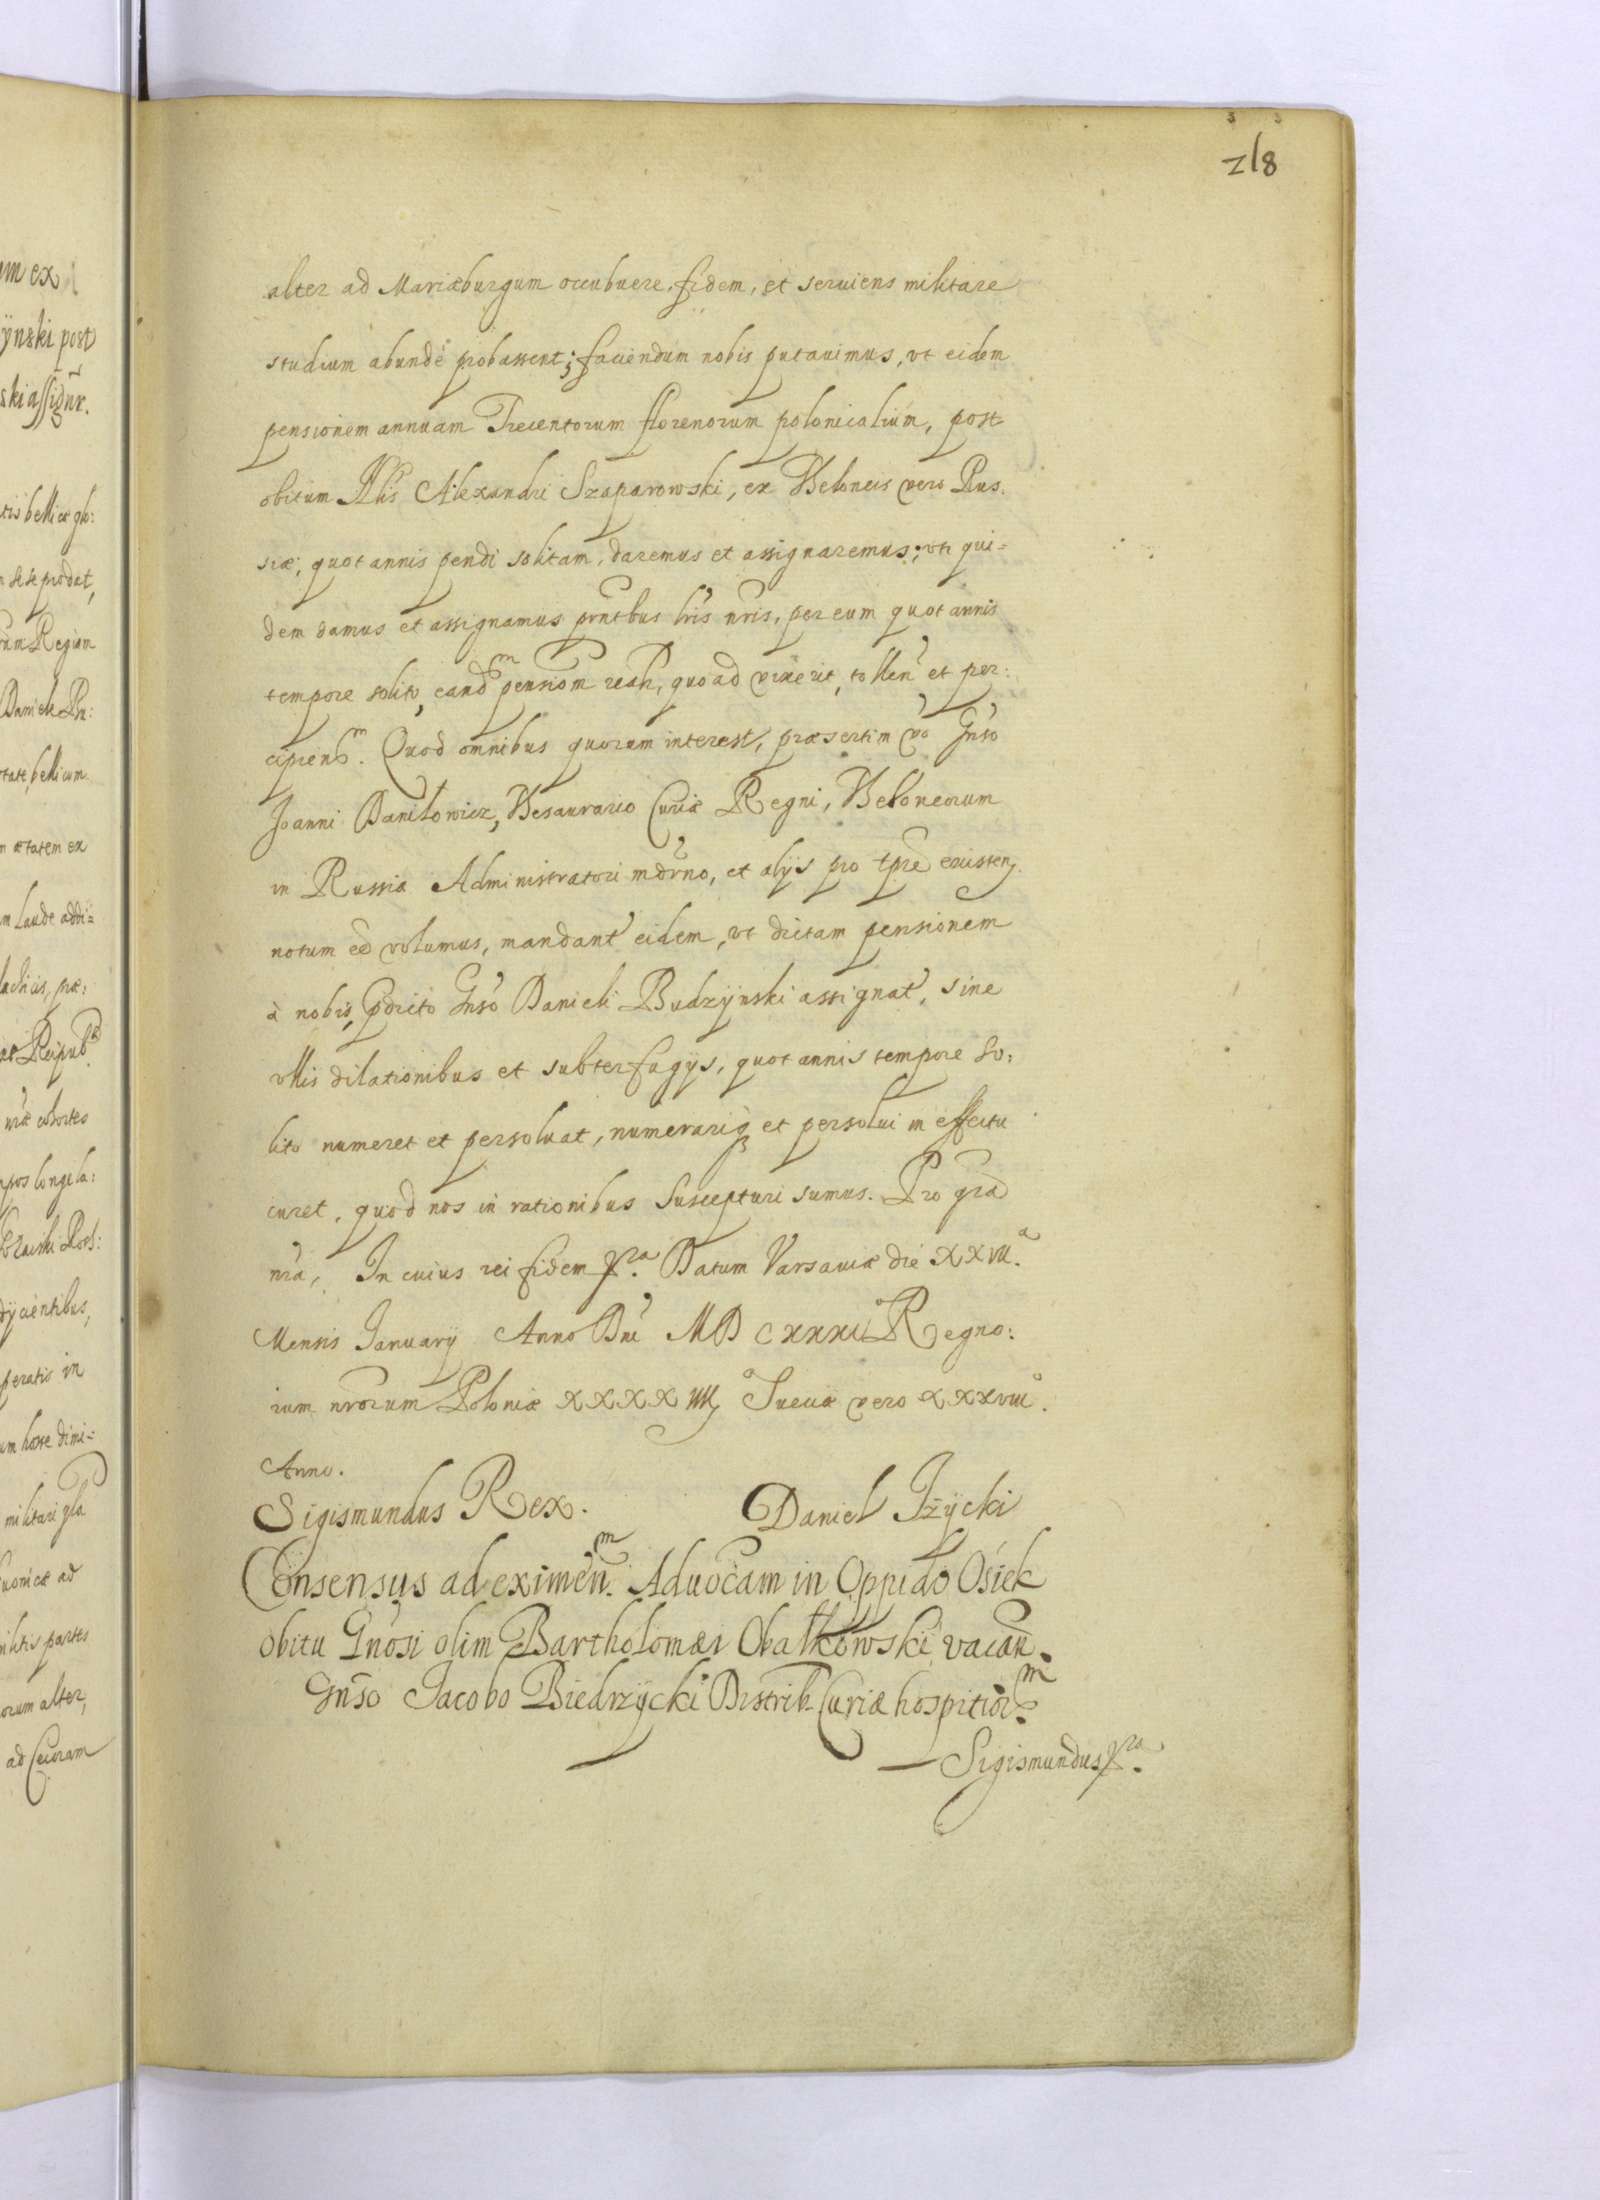 218
alter ad Mariæburgum occubuere, fidem, et seruiens militare
studium abundè probassent; faciendum nobis putauimus, vt eidem
pensionem annuam Trecentorum florenorum polonicalium, post
obitum Alexandri Szaparowski, ex Theloneis vero Rus:
siæ, quot annis pendi solitam, daremus et assignaremus; vti qui=
dem damus et assignamus prntbus lris nris, per eum quot annis
tempore solito, eand^m pensiom quoad vixerit, tollen et per:
cipiend^m. Quod omnibus quorum interest, præsertim vo Gnso
Joanni Daniłowicz, Thesaurario Curiæ Regni, Theloneorum
in Russia Administratori mdrno, et alijs pro tpre existen
notum eē volumus, mandant eidem, vt dictam pensionem
à nobis, pdicto Gnso Danieli Budzÿnski assignat, sine
vllis dilationibus et subterfugijs, quot annis tempore so:
lito numeret et persoluat, numerariq et persolui in effectu
curet, quod nos in rationibus suscepturi sumus. Pro gra
nra, In cuius rei fidem p^ra. Datum Varsauiæ die XXVII^a.
Mensis Januarij Anno Dni MDCXXXI Regno:
rum nrorum Poloniæ XXXXIIII^o Sueciæ vero XXXVIII^o.
Anno.
Sigismundus Rex. Daniel Iżÿcki
Consensus ad eximen^m. Aduocam in Oppido Osiek
obitu Gnosi olim Bartholomæi Obałkowski vacan.
Gnso Jacobo Biedrzÿcki Distrib. Curiæ hospitior^m.
Sigismundus p^ra.
um ex
ÿnski post
ski assignr.
tis bellicæ glo:
se se prodat,
Region
Daniele Bu:
tate, bellicum
m ætatem ex
m laude addi=
præ:
Reipub
nræ cohortes
longe la:
dÿcientibus,
peratis in
um hoste dimi=
militari gla
ad
militis partes
orum alter,
ad Cecoram